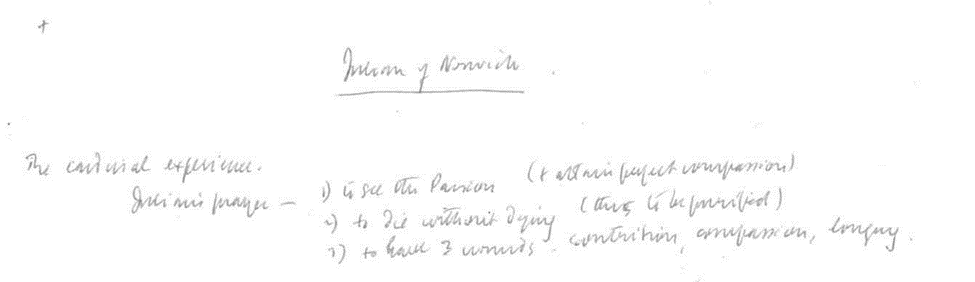 +
Julian of Norwich.
The cardinal experience.
Julian's prayer – 1) to see the Passion (& attain perfect compassion)
2) to die without dying (thus to be purified)
3) to have 3 wounds - contrition, compassion, longing.